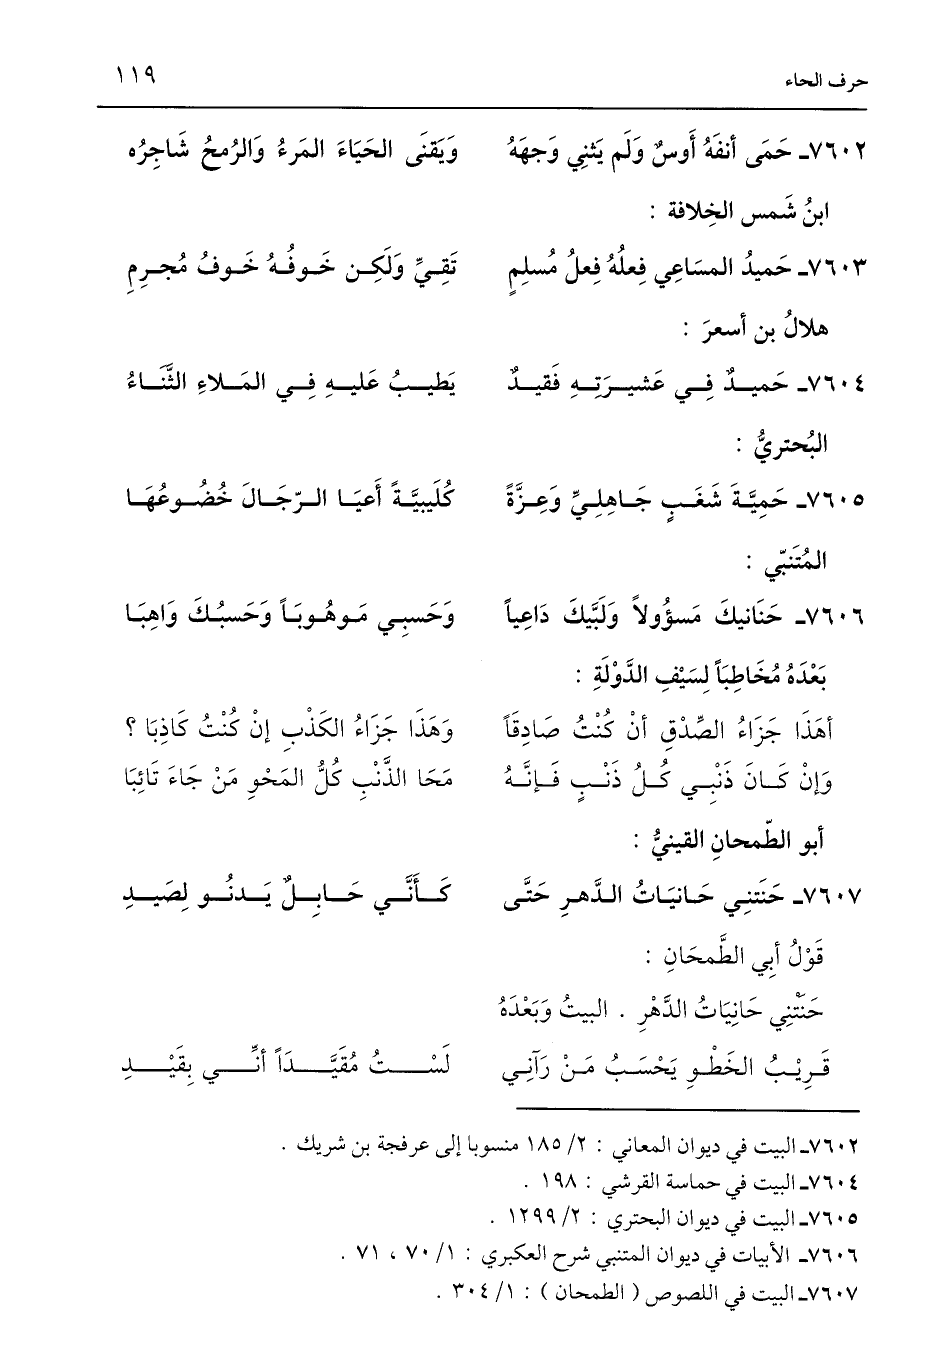 حرف الحاء ١١٩
٧٦٠٢ـ حَمَى أنفَهُ أَوسٌ وَلَم يَثنِي وَجهَهُ وَيَقنَى الحَيَاءَ المَرءُ وَالرُمحُ شَاجِرُه
ابنُ شَمس الخِلافة :
٧٦٠٣ـ حَمِيدُ المسَاعِي فِعلُهُ فِعلُ مُسلِمٍ تَقِيٍّ وَلَكِن خَوفُهُ خَوفُ مُجرِمِ
هلالُ بن أسعرَ :
٧٦٠٤ـ حَمِيدٌ فِي عَشيرَتِهِ فَقيدٌ يَطيبُ عَليهِ فِي المَلاءِ الثَّنَاءُ
البُحتريُّ :
٧٦٠٥ـ حَمِيَّةَ شَغَبٍ جَاهِلِيٍّ وَعِزَّةً كُلَيبِيَّةً أَعيَا الرّجَالَ خُضُوعُهَا
المُتَنبّي :
٧٦٠٦ـ حَنَانيكَ مَسؤُولاً وَلَبَّيكَ دَاعِياً وَحَسبِي مَوهُوبَاً وَحَسبُكَ وَاهِبَا
بَعْدَهُ مُخَاطِبَاً لِسَيْفِ الدَّوْلَةِ :
أهَذَا جَزَاءُ الصِّدْقِ أنْ كُنْتُ صَادِقَاً وَهَذَا جَزَاءُ الكَذْبِ إنْ كُنْتُ كَاذِبَا ؟
وَإنْ كَانَ ذَنْبِي كُلُ ذَنْبٍ فَإنَّهُ مَحَا الذَّنْبِ كُلُّ المَحْوِ مَنْ جَاءَ تَائِبَا
أبو الطّمحانِ القينيُّ :
٧٦٠٧ـ حَنَتنِي حَانيَاتُ الدَّهرِ حَتَّى كَأَنَّي حَابِلٌ يَدنُو لِصَيدِ
قَوْلُ أبِي الطَّمحَانِ :
حَنَتْنِي حَانِيَاتُ الدَّهْرِ . البيتُ وَبَعْدَهُ
قَرِيْبُ الخَطْوِ يَحْسَبُ مَنْ رَآنِي لَسْتُ مُقَيَّدَاً أنَّي بِقَيْدِ
٧٦٠٢ـ البيت في ديوان المعاني : ٢/ ١٨٥ منسوبا إلى عرفجة بن شريك .
٧٦٠٤ـ البيت في حماسة القرشي : ١٩٨ .
٧٦٠٥ـ البيت في ديوان البحتري : ٢/ ١٢٩٩ .
٧٦٠٦ـ الأبيات في ديوان المتنبي شرح العكبري : ١/ ٧٠ ، ٧١ .
٧٦٠٧ـ البيت في اللصوص ( الطمحان ) : ١/ ٣٠٤ .